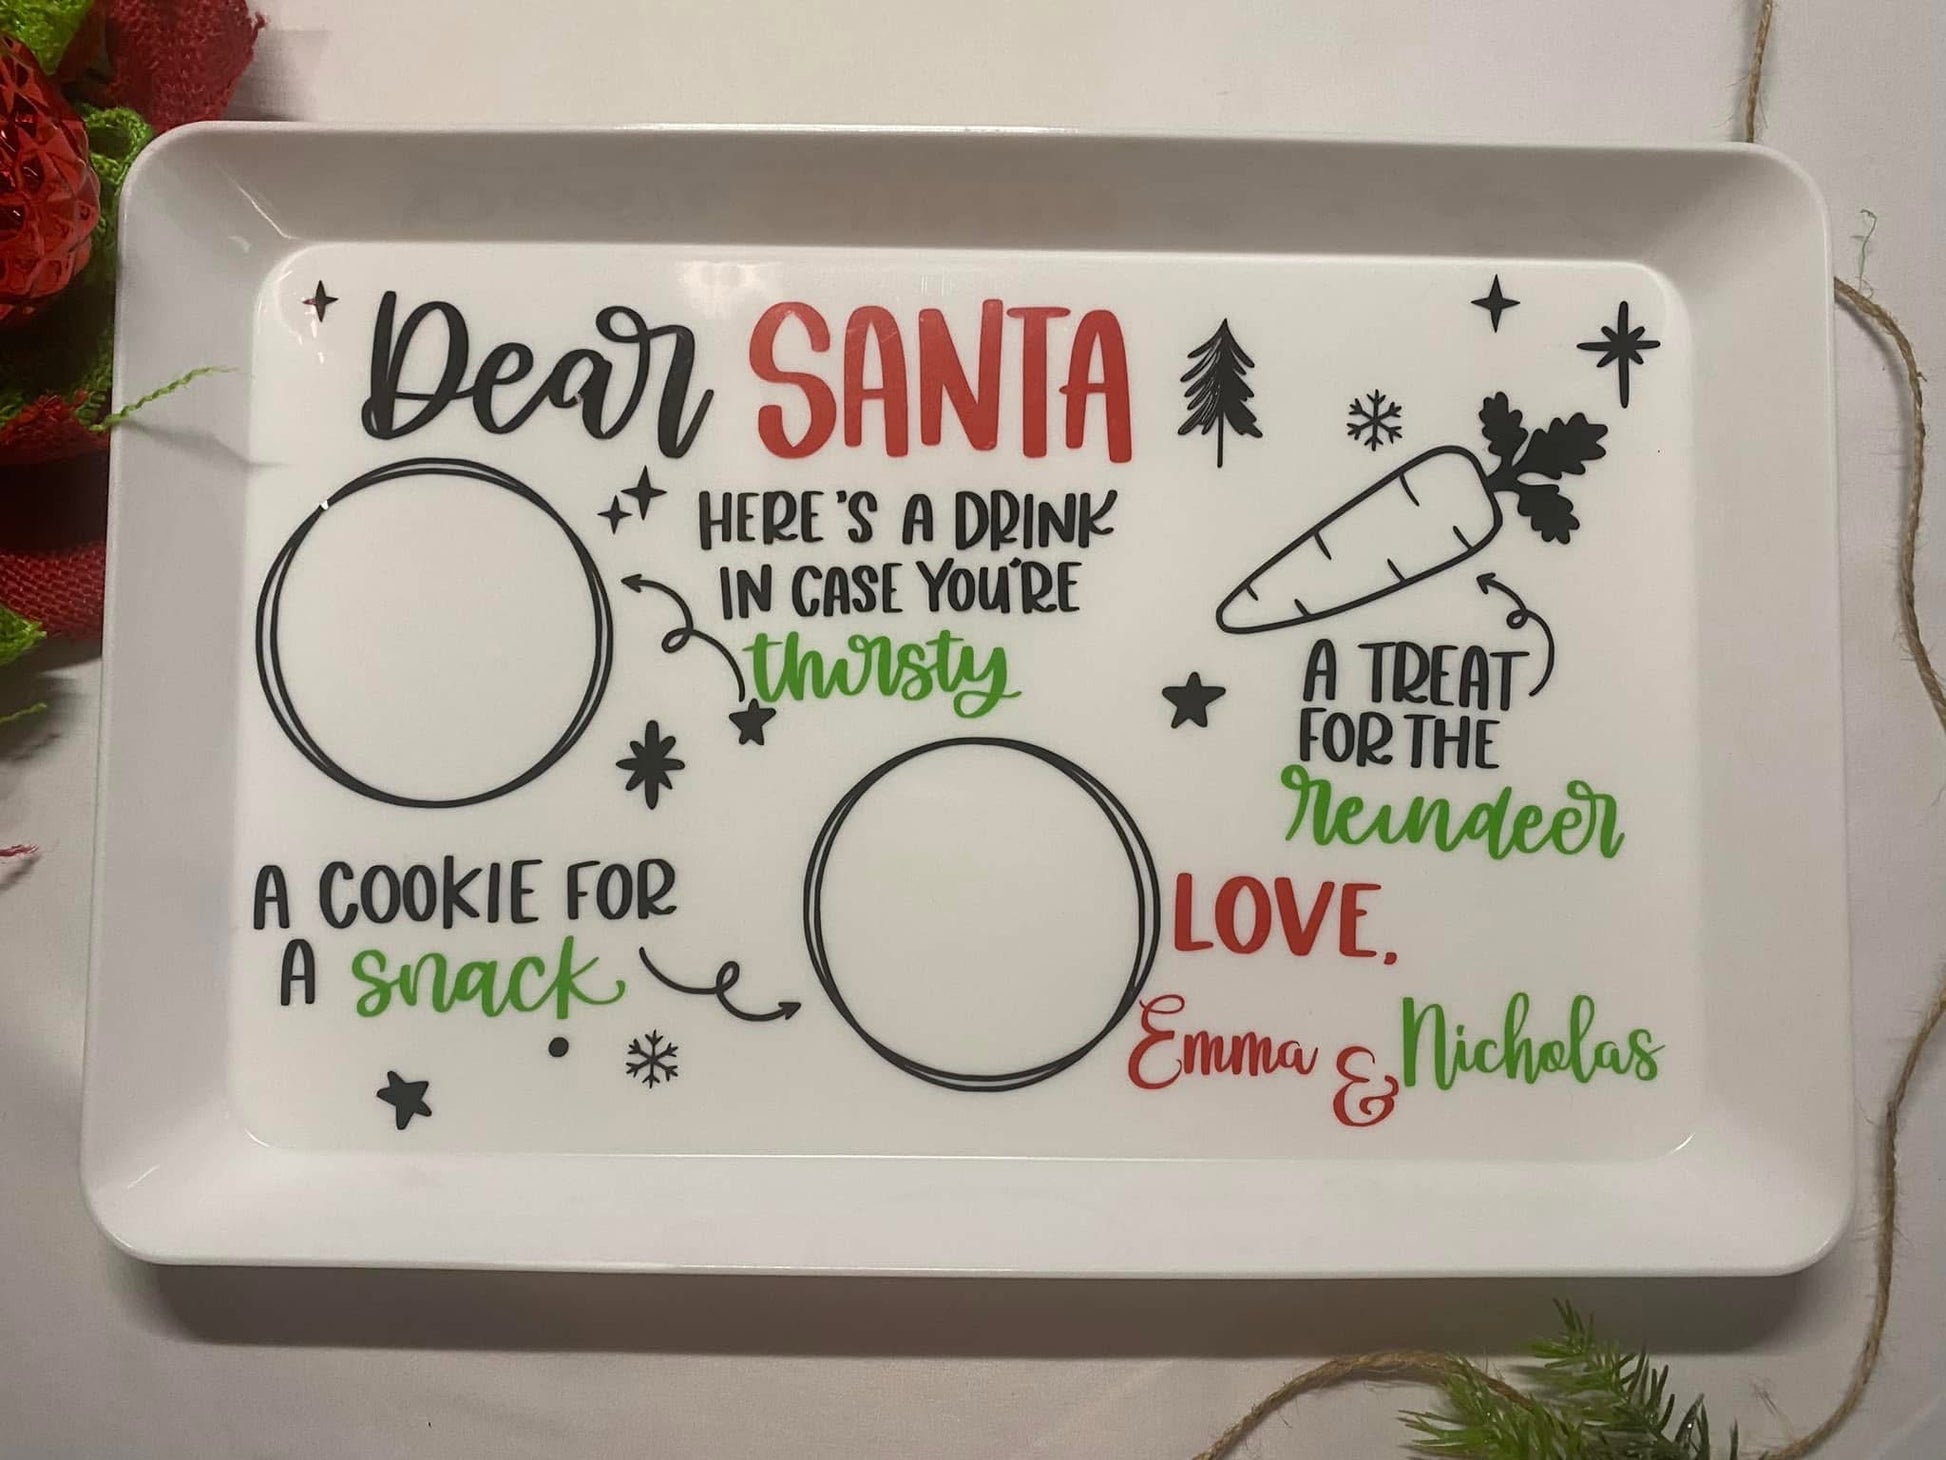 Dear SANTA
HERE'S A DRINK
IN CASE YOU'RE
thirsty
A TREAT
FOR THE
reindeer
A COOKIE FOR
A snack
LOVE,
Emma & Nicholas